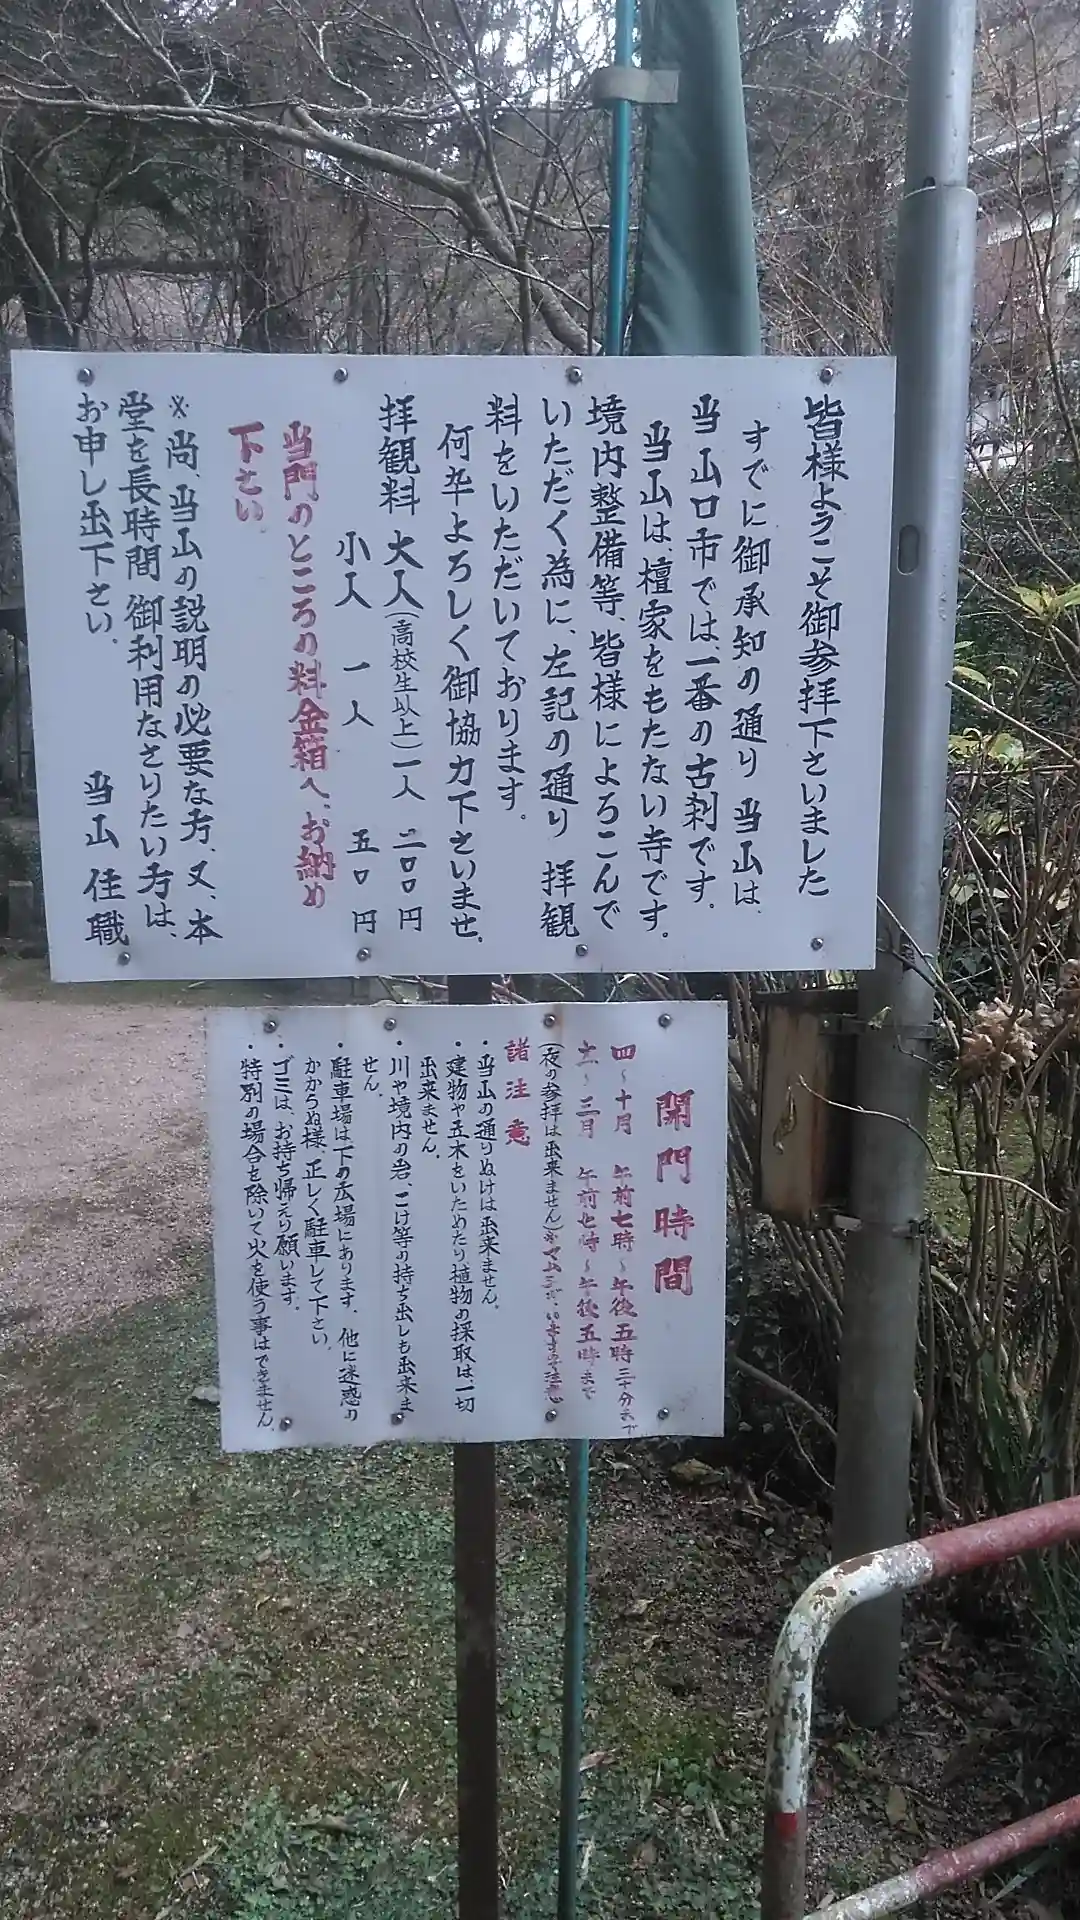 皆様ようこそ御参拝下さいました
すでに御承知の通り 当山は、
当山口市では、一番の古刹です。
当山は、檀家をもたない寺です。
境内整備等、皆様によろこんで
いただく為に、左記の通り 拝観
料をいただいております。
何卒よろしく御協力下さいませ。
拝観料 大人(高校生以上)一人 二〇〇円
小人 一人 五〇円
当門のところの料金箱へ、お納め
下さい
※尚、当山の説明の必要な方、又、本
堂を長時間 御利用なさりたい方は、
お申し出下さい。
当山 住職
開門時間
四〜十月 午前七時〜午後五時三十分まで
十一〜三月 午前七時〜午後五時まで
(夜の参拝は出来ません)※マムシが、いますので注意
諸注意
・当山の通りぬけは出来ません。
・建物や立木をいためたり植物の採取は、一切
出来ません。
・川や境内の岩、こけ等の持ち出しも出来ま
せん。
・駐車場は下の広場にあります。他に迷惑の
かからぬ様、正しく駐車して下さい。
・ゴミは、お持ち帰えり願います。
・特別の場合を除いて火を使う事はできません。